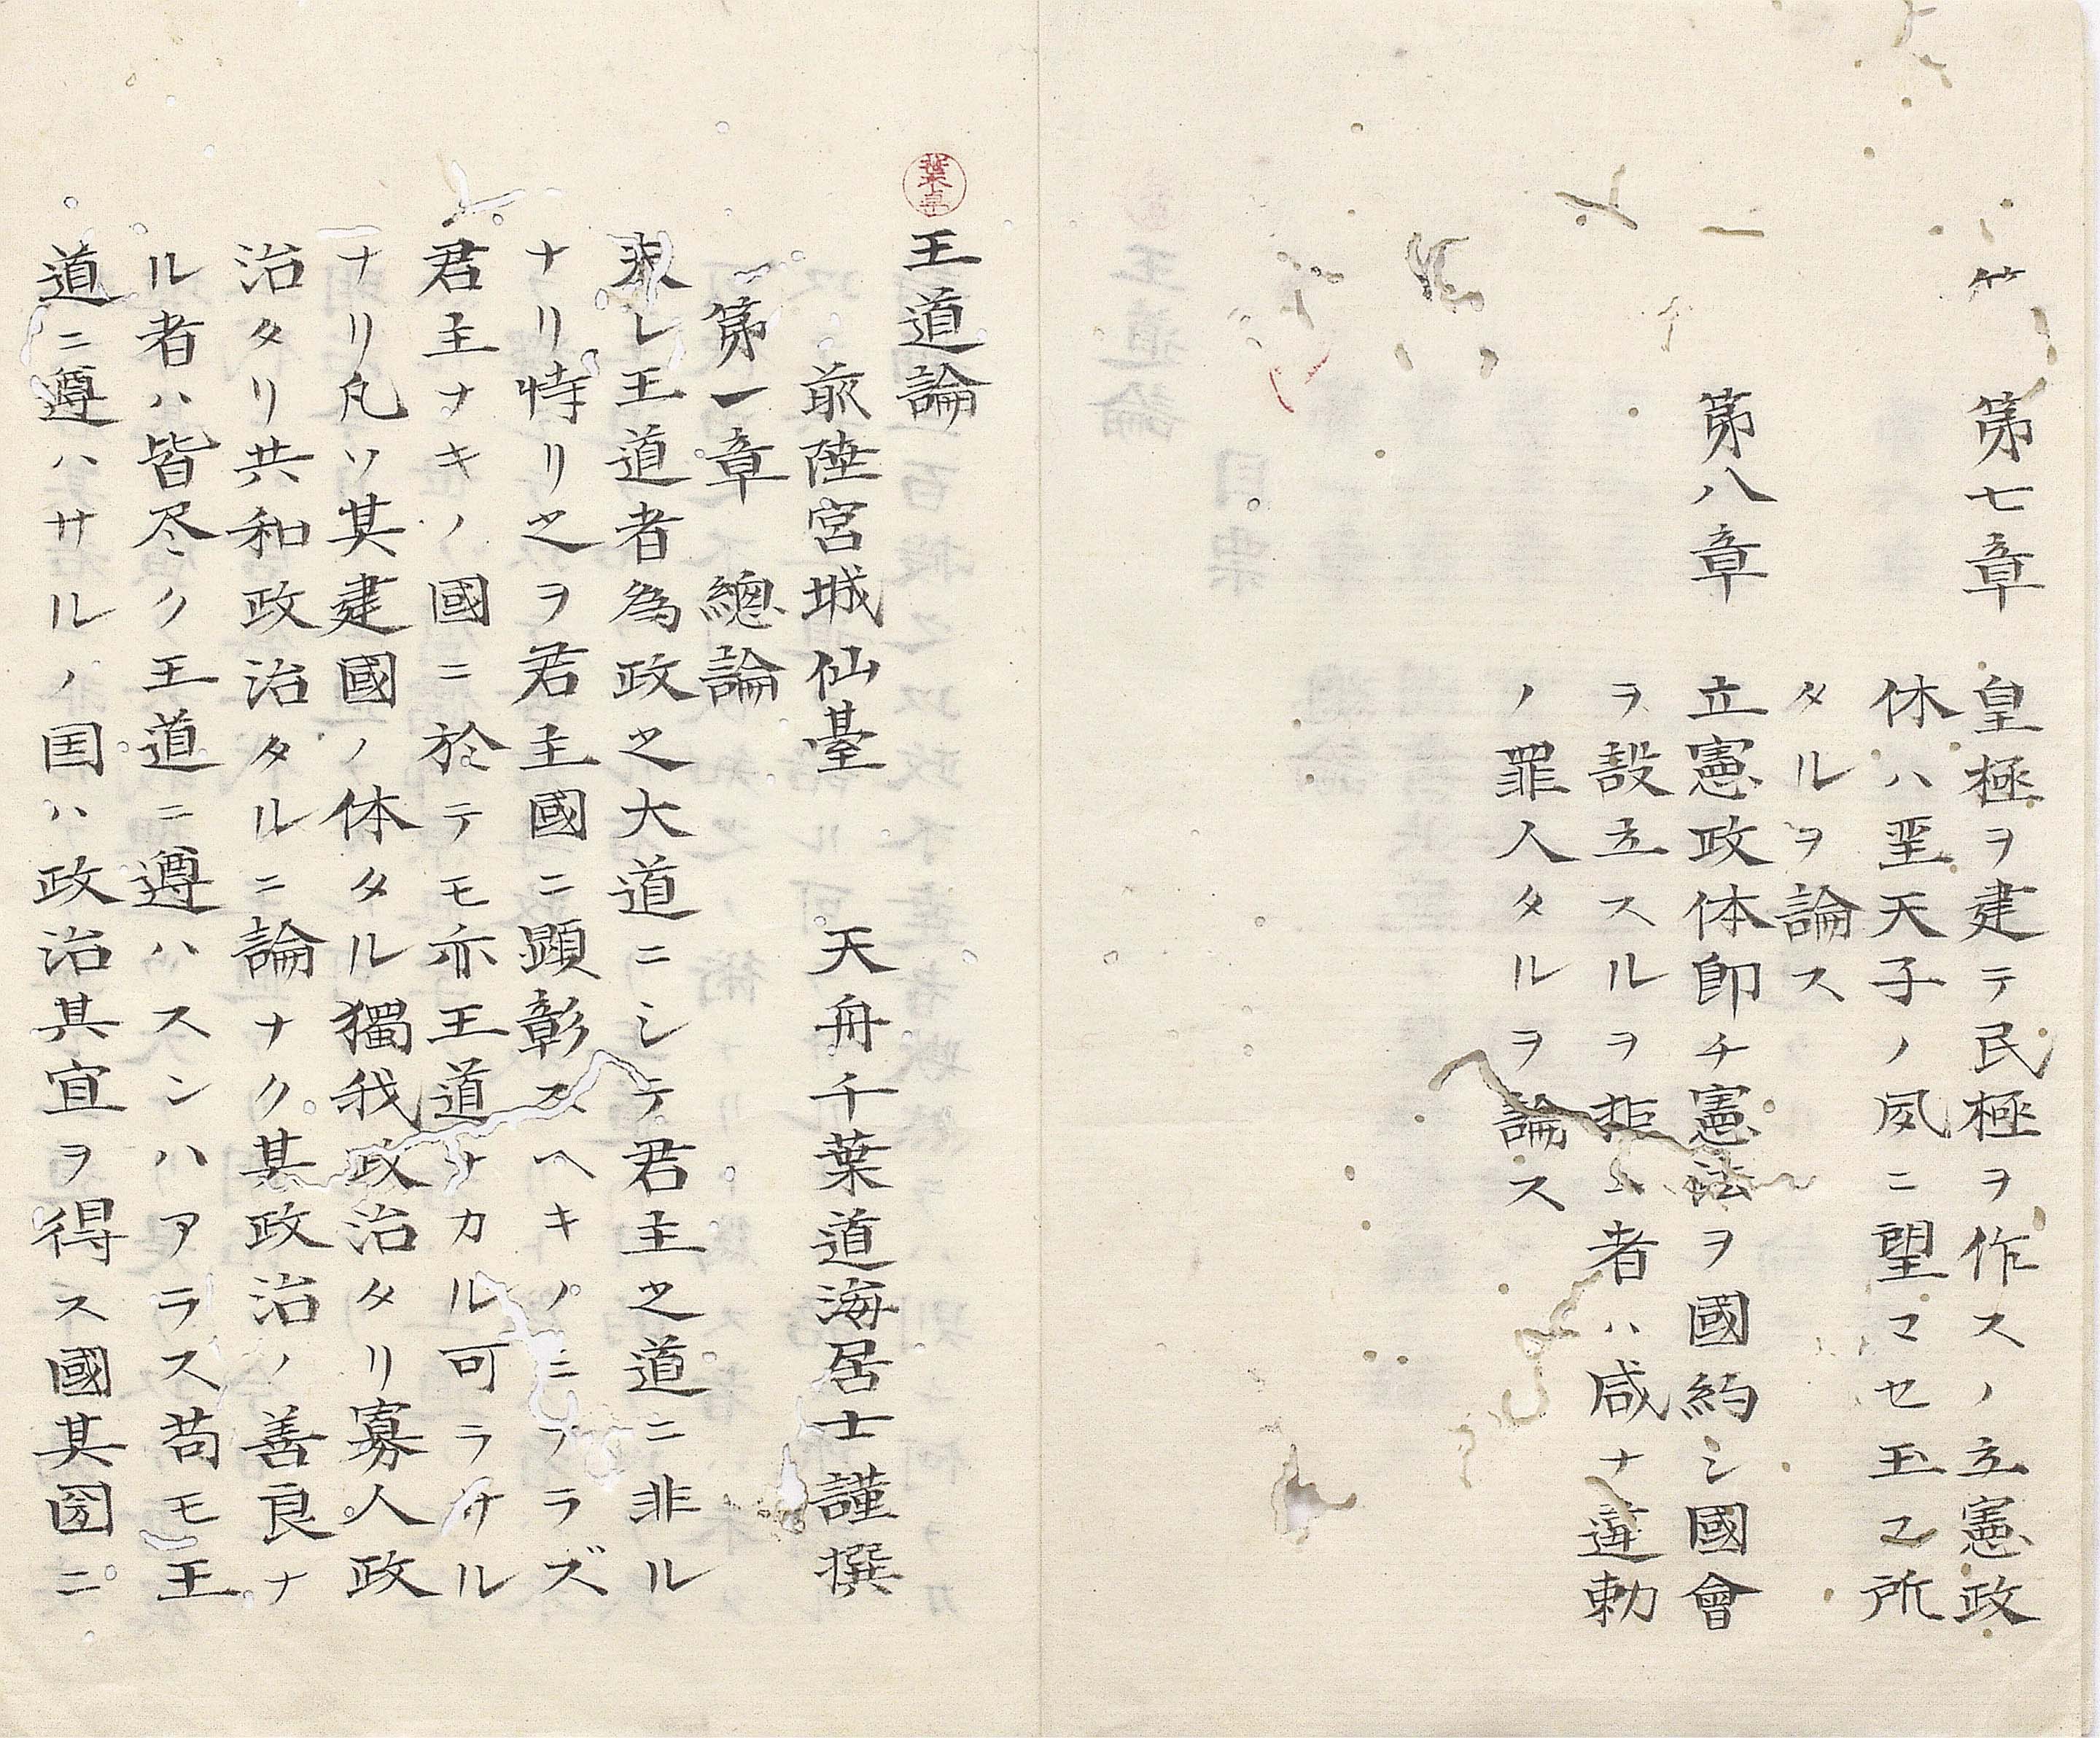 第七章　皇極ヲ建テ民極ヲ作スノ立憲政
休ハ聖天子ノ夙ニ望マセ玉フ所
タルヲ論ス
第八章　立憲政体即チ憲法ヲ國約シ國會
ヲ設立スルヲ拒ム者ハ咸ナ違勅
ノ罪人タルヲ論ス
王道論
前陸宮城仙臺　天舟千葉道海居士謹撰
第一章　總論
夫レ王道者為政之大道ニシテ君主之道ニ非ル
ナリ特リ之ヲ君主國ニ顕彰スヘキノミニアラズ
君主ナキノ國ニ於テモ亦王道ナカル可ラサル
ナリ凡ソ其建國ノ体タル獨我政治タリ寡人政
治タリ共和政治タルニ論ナク其政治ノ善良ナ
ル者ハ皆尽ク王道ニ遵ハスンハアラス苟モ王
道ニ遵ハサルノ国ハ政治其宜ヲ得ス國其圀ニ